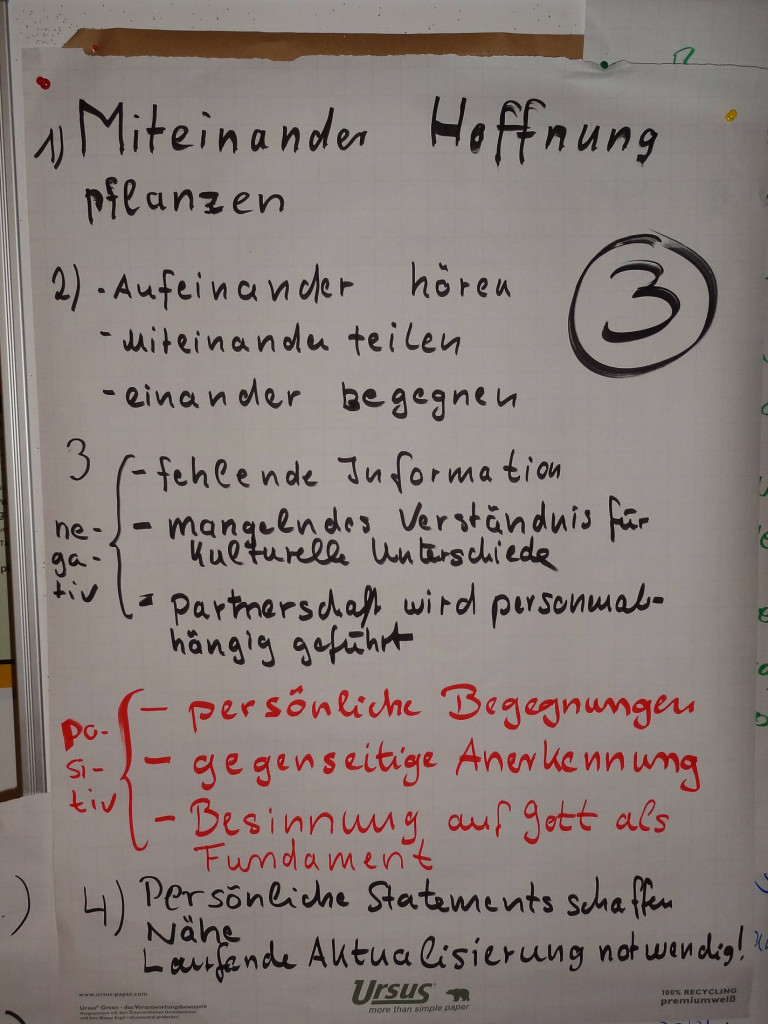 1) Miteinander Hoffnung
pflanzen
2) - Aufeinander hören
- miteinander teilen
- einander begegnen
3
3
negativ
- fehlende Information
- mangelndes Verständnis für
kulturelle Unterschiede
- Partnerschaft wird personunab-
hängig geführt
po-
si-
tiv
- persönliche Begegnungen
- gegenseitige Anerkennung
- Besinnung auf Gott als
Fundament
4) Persönliche Statements schaffen
Nähe
Laufende Aktualisierung notwendig!
www.ursus-paper.com
Ursus® Green - das Verantwortungsbewusste
Ursus
more than simple paper
100% RECYCLING
premiumweiß